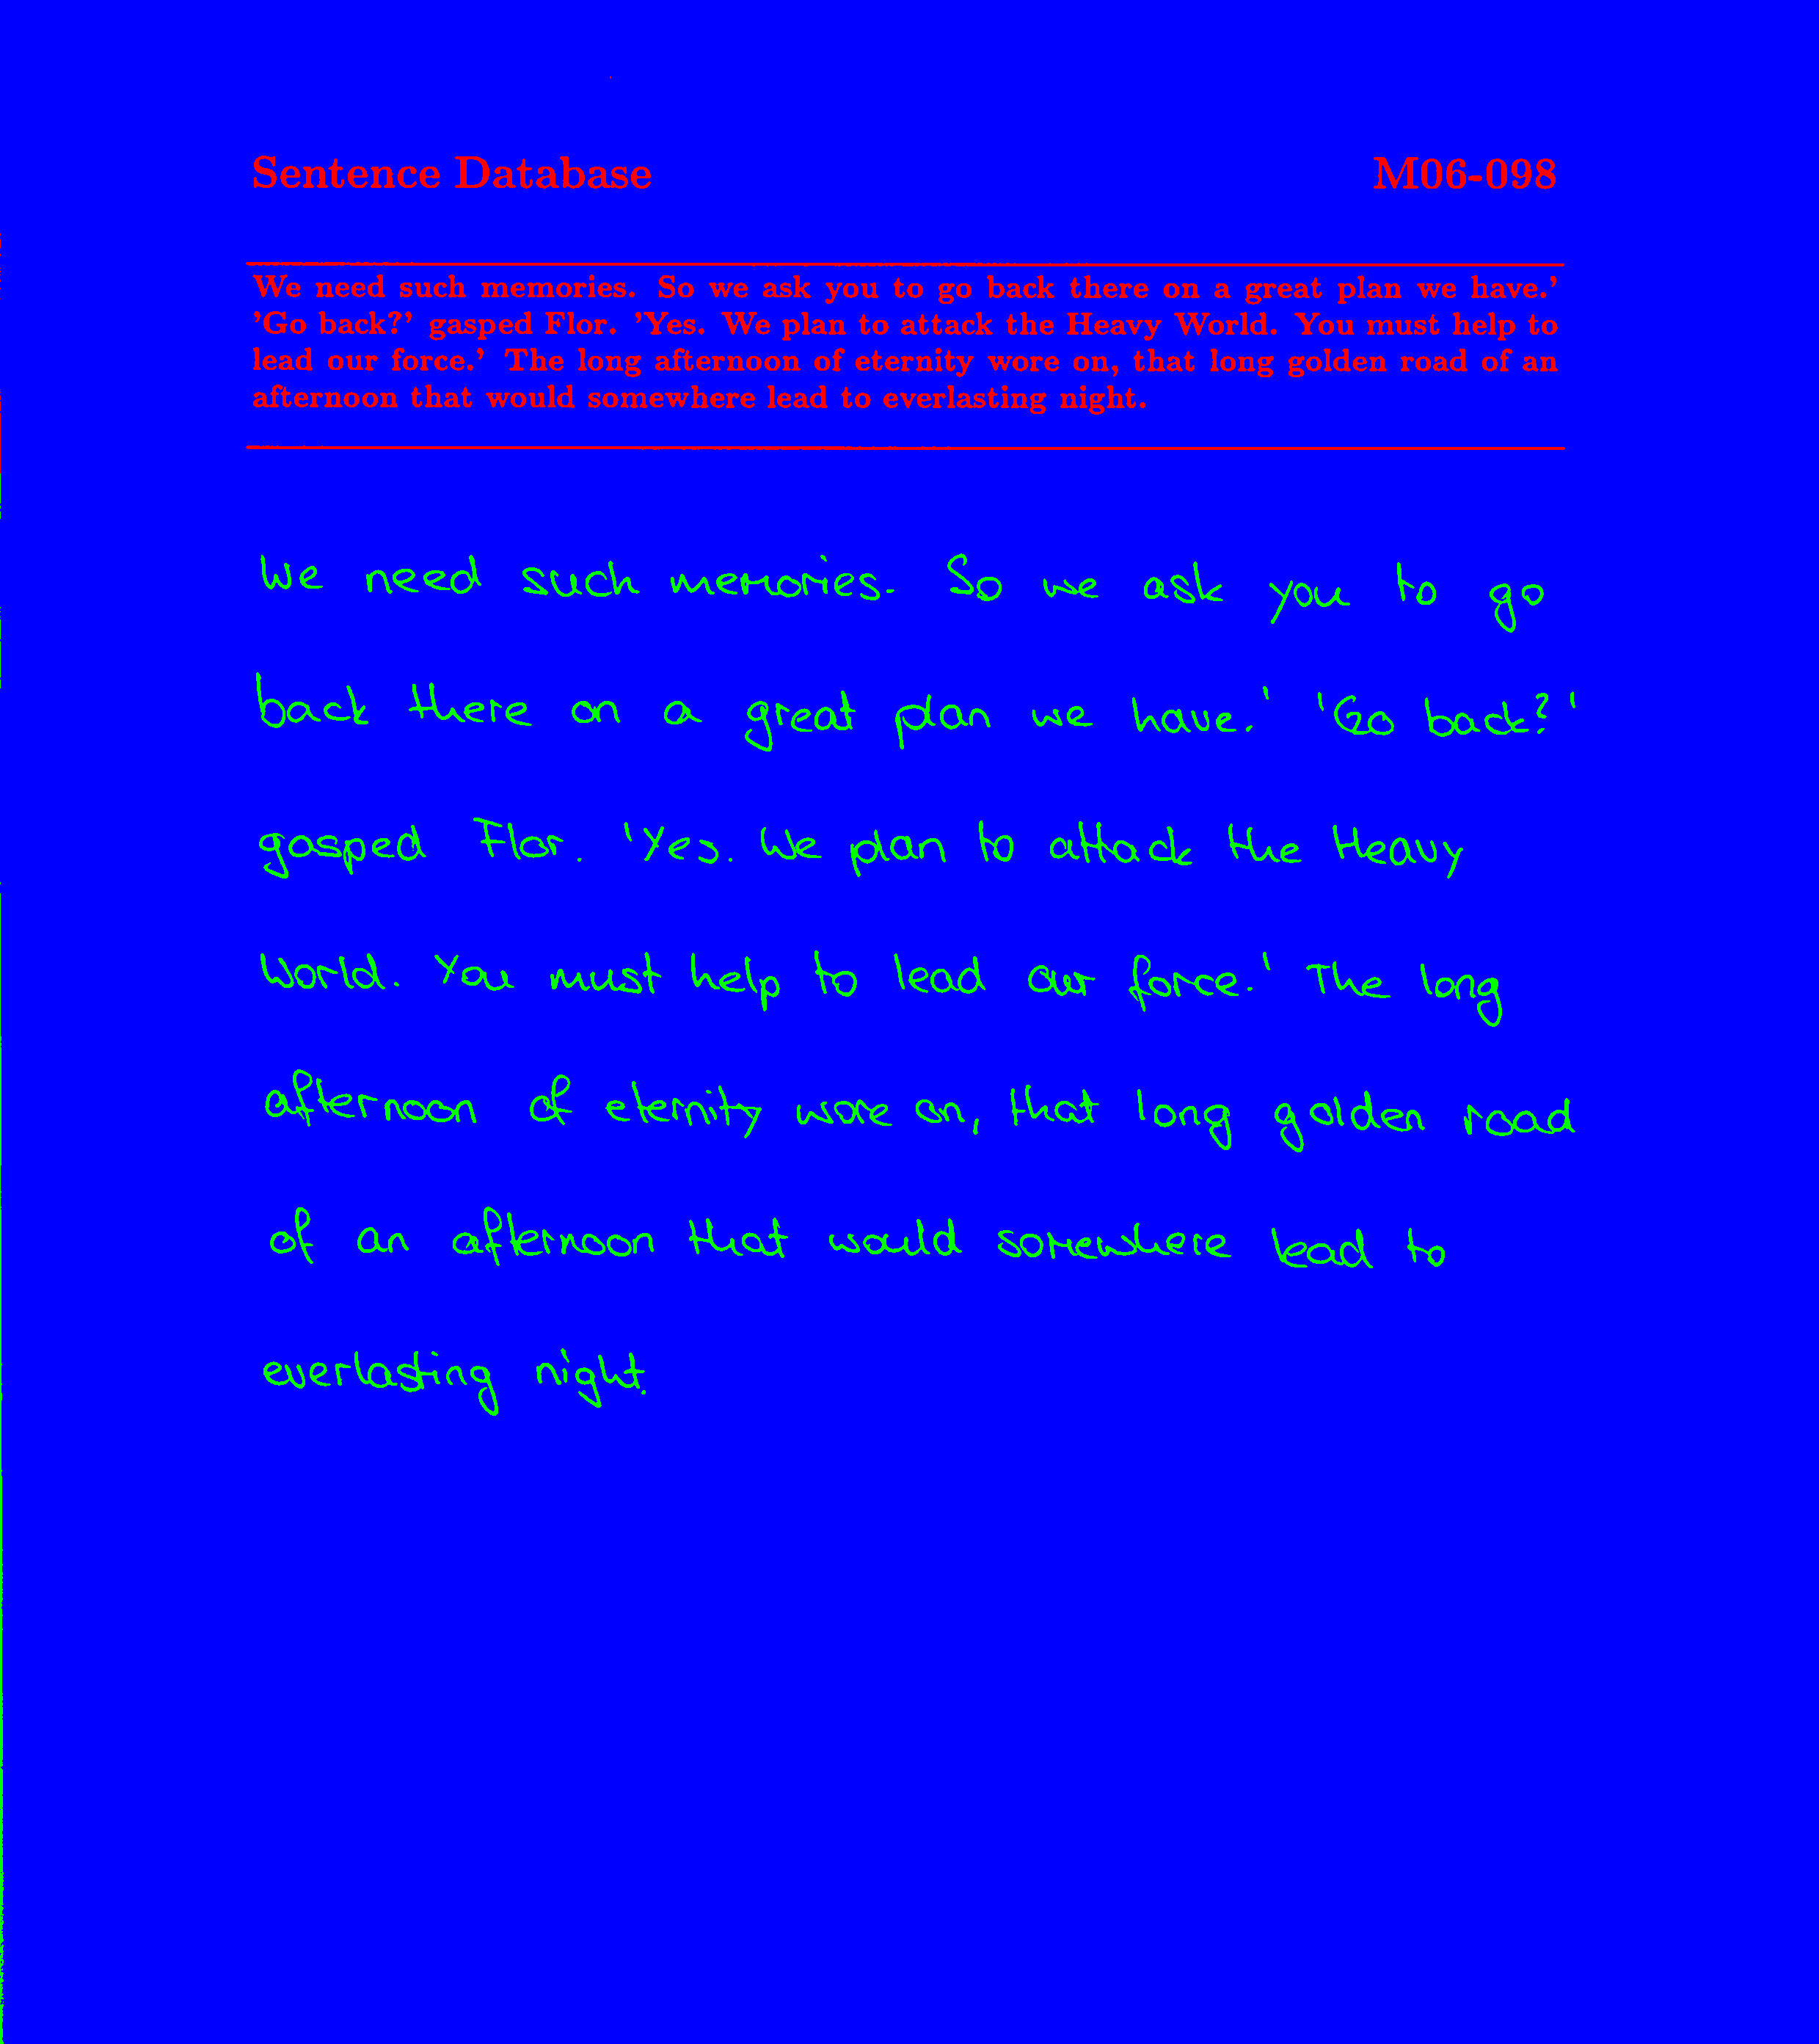 Sentence Database M06-098
We need such memories. So we ask you to go back there on a great plan we have.'
'Go back?' gasped Flor. 'Yes. We plan to attack the Heavy World. You must help to
lead our force.' The long afternoon of eternity wore on, that long golden road of an
afternoon that would somewhere lead to everlasting night.
We need such memories. So we ask you to go
back there on a great plan we have.' 'Go back?'
gasped Flor. 'Yes. We plan to attack the Heavy
World. You must help to lead our force.' The long
afternoon of eternity wore on, that long golden road
of an afternoon that would somewhere lead to
everlasting night.